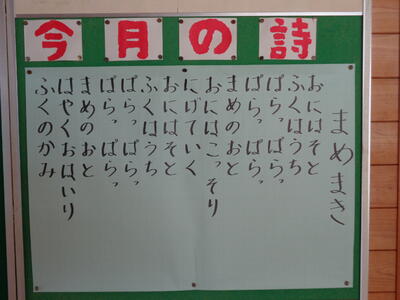 今月の詩
まめまき
おにはそと
ふくはうち
ぱらっ ぱらっ
ぱらっ ぱらっ
まめのおと
おにはこっそり
にげていく
おにはそと
ふくはうち
ぱらっ ぱらっ
ぱらっ ぱらっ
まめのおと
はやくおはいり
ふくのかみ